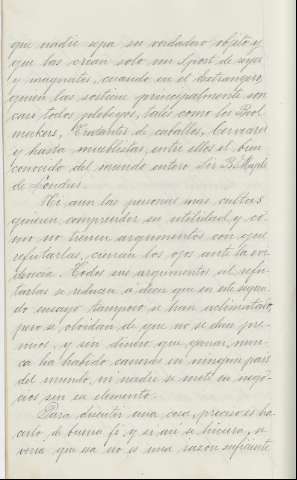 que nadie sepa su verdadero objeto y
que las crian solo un Sport de reyes
y magnates, cuando en el extranjero
quien las sostiene principalmente son
casi todos plebeyos, tales como los Book
makers, Tratantes de caballos, Cerveceros
y hasta mueblistas, entre ellos el bien
conocido del mundo entero Sir B. Maple
de Londres.
Ni aun las personas mas cultas
quieren comprender su utilidad, y co-
mo no tienen argumentos con que
refutarlas, cierran los ojos ante la evi-
dencia. Todos sus argumentos al refu-
tarlas se reducen a decir que en este segun-
do ensayo tampoco se han aclimatado,
pero se olvidan de que no se dan pre-
mios, y sin dinero que ganar, nun-
ca ha habido carreras en ningun pais
del mundo, ni nadie se mete en nego-
cios sin su elemento.
Para discutir una cosa, preciso es ha-
cerlo de buena fé, y si asi se hiciera, se
veria que esa no es una razón suficiente